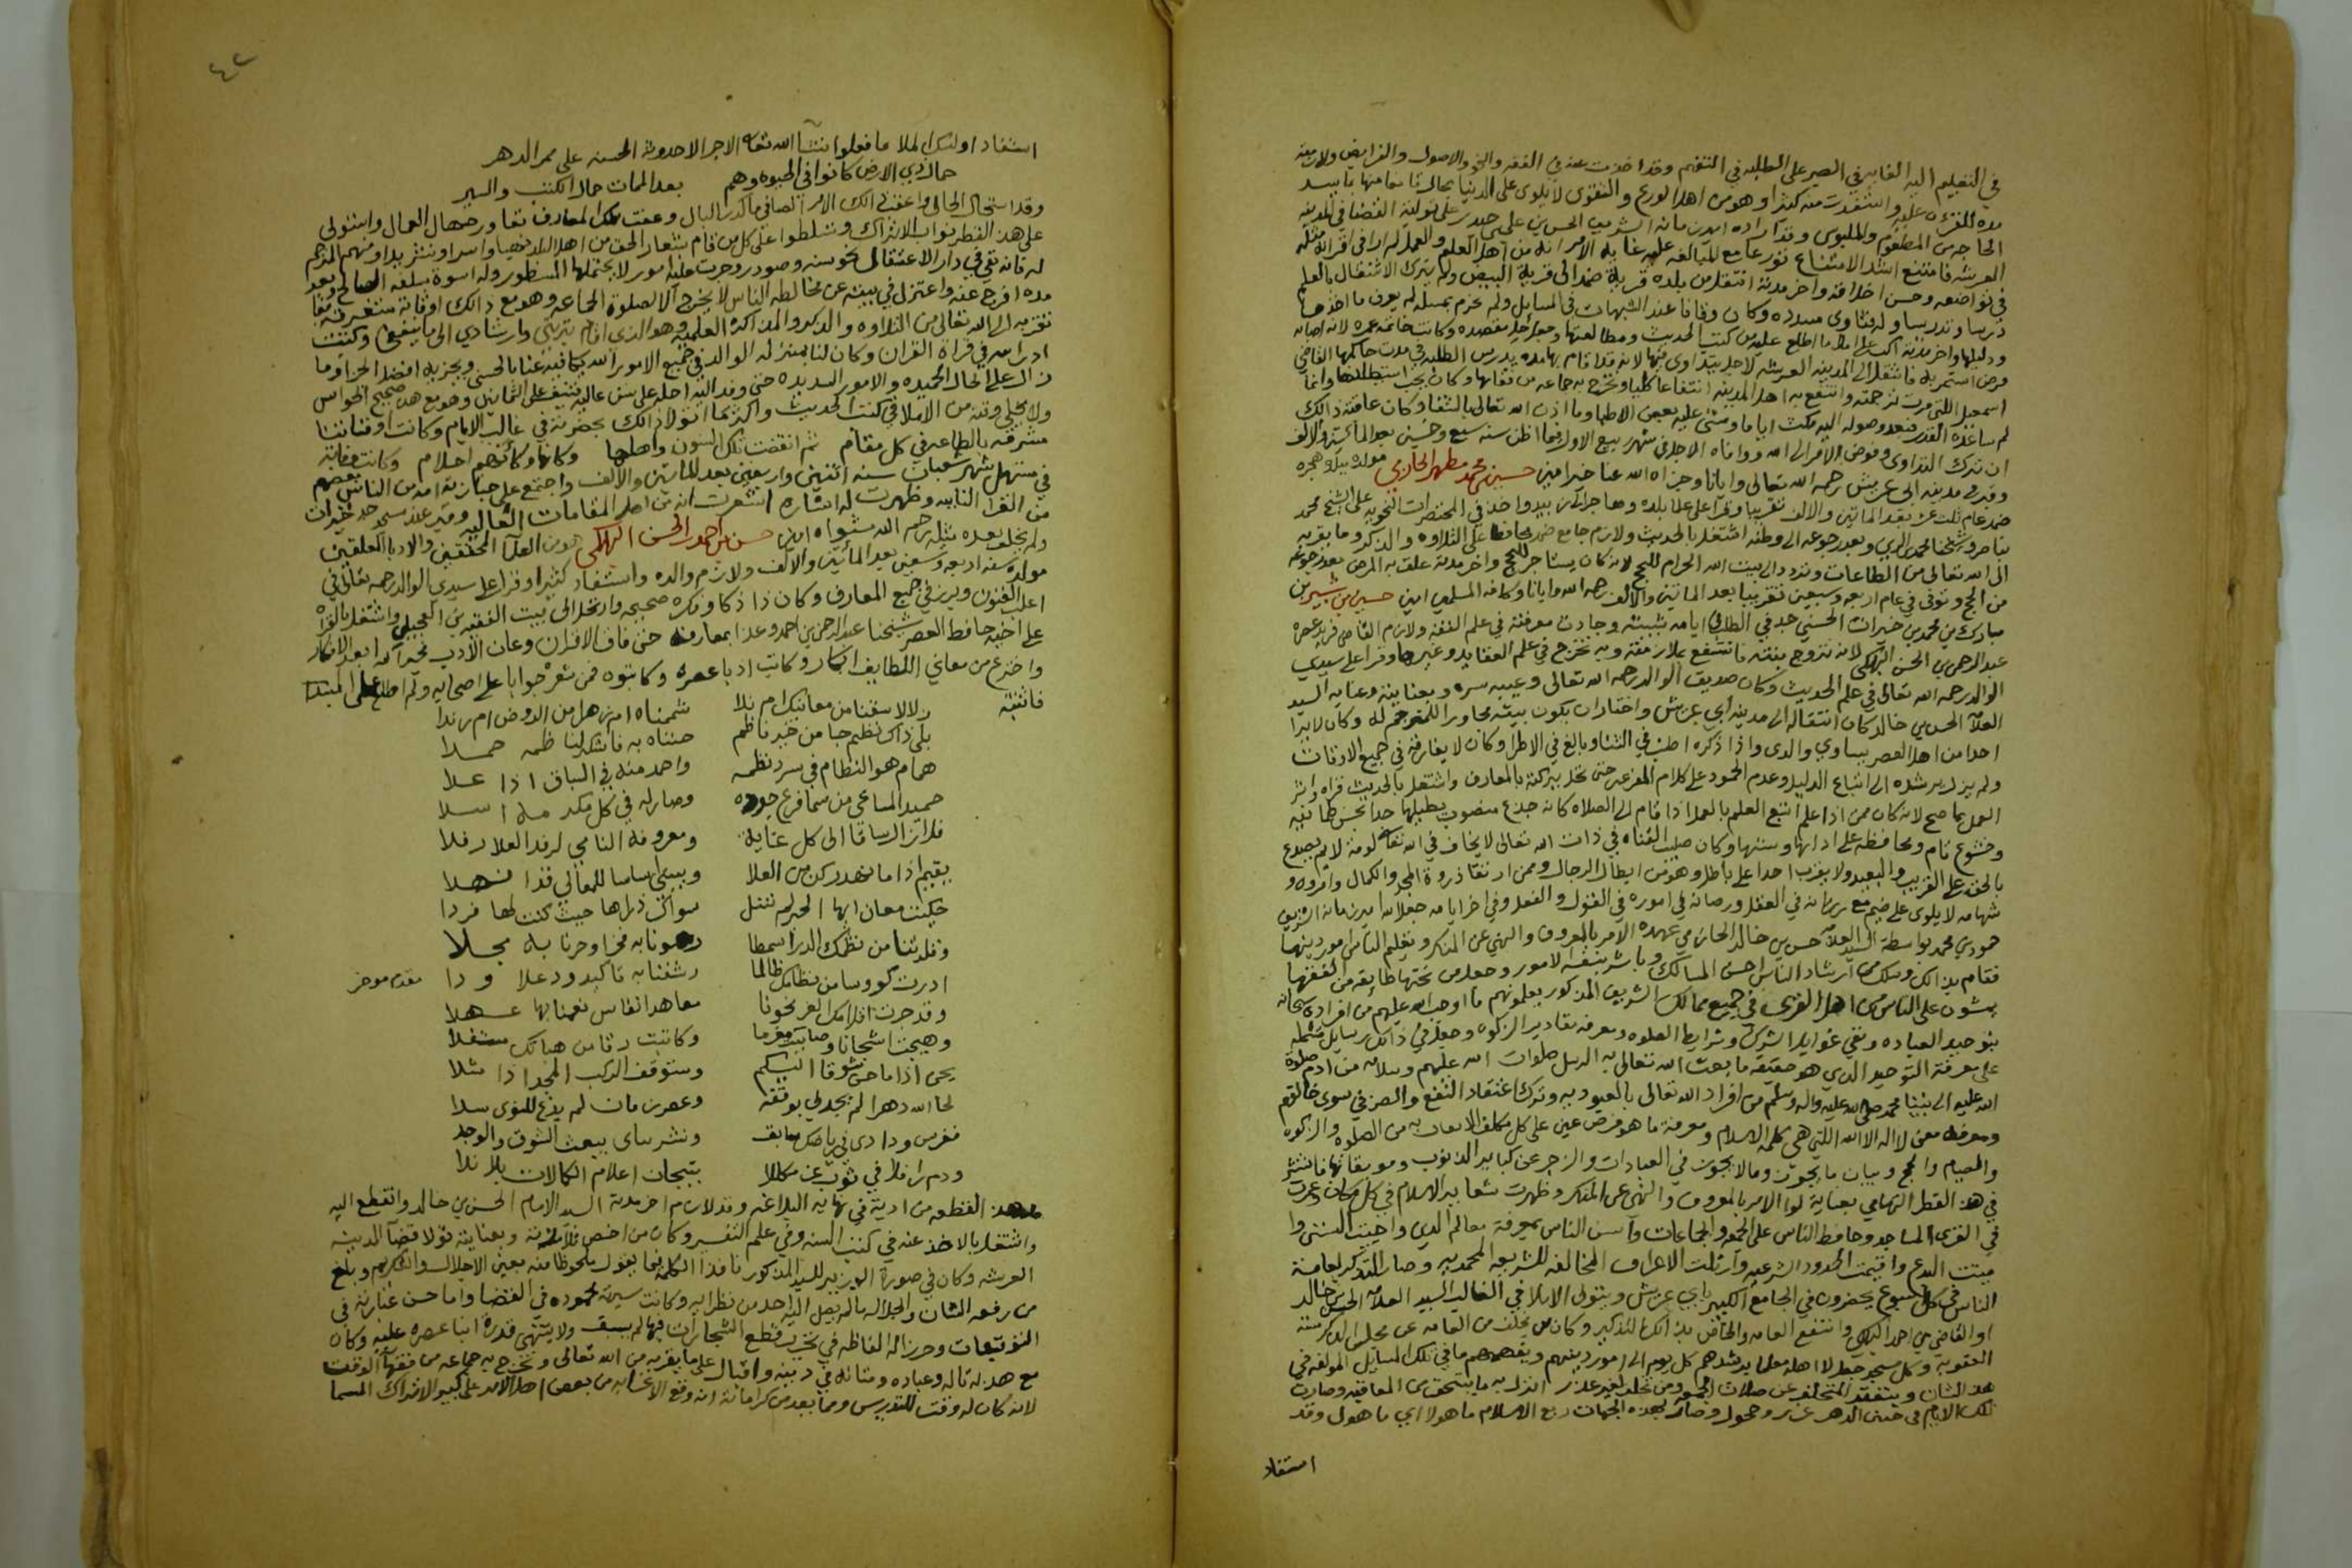 في التعليم اليه الغايه في الصبر على الطلبه في التفهم وقد اخذت عنه في الفقه والنحو والاصول والفرايض ولازمته
مده للقراه عليه واستفدت منه كثيرا وهو من اهل الورع والتقوى لا يلوى على الدنيا بحال قانعا منها بما يسد
الحاجه من المطعوم والملبوس وقد اراده امير زمانه الشريف الحسين بن علي حيدر على تولية القضا في المدينه
العريشه فامتنع اشد الامتناع تورعا مع المبالغه عليه غاية الامر انه من اهل العلم والعمل لم ار في اقرانه مثله
في تواضعه وحسن اخلاقه واخر مدته انتقل من بلده قرية ضمد الى قرية البيض ولم يترك الاشتغال بالعلم
درسا وتدريسا وله فتاوى مسدده وكان وقافا عند الشبهات في المسايل ولم يجزم بمسئله لم يعرف ماخذها
ودليلها واخر مدته اكب على ما اطلع عليه من كتب الحديث ومطالعتها وجعل جل مقصده وكانت خاتمة عمره لانه اصابه
مرض استمر به فانتقل الى المدينه العريشه لاجل يتداوى فيها لانه قد اقام بها مده يدرس الطلبه في مدت حاكمها القاضي
اسمعيل التي مرت ترجمته وانتفع به اهل المدينه انتفاعا كليا وتخرج به جماعه من فقهائها وكان يحب استيطانها وانما
لم يساعده القدر فبعد وصوله اليه مكث اياما ومشى عليه بعض الاطبا وما اذن الله تعالى بالشفا وكان عاقبة ذالك
ان ترك التداوى وفوض الامر الى الله ووافاه الاجل في شهر ربيع الاول فيما اظن سنه سبع وخمسين بعد المائتين والالف
وقبر في مدينه ابي عريش رحمه الله تعالى وايانا وجزاه الله عنا خيرا امين حسين بن محمد مطهر الحازمي مولده ببلده هجرة
ضمد عام ثلث عشر بعد المائتين والالف تقريبا وقرا على علما بلده وهاجر الى زبيد واخذ في المختصرات النحويه على الشيخ محمد
ناصر وشيخنا محمد الزين وبعد رجوعه الى وطنه اشتغل بالحديث ولازم جامع ضمد محافظا على التلاوه والذكر وما يقربه
الى الله تعالى من الطاعات وتردد الى بيت الله الحرام للحج لانه كان يستاجر للحج واخر مدته علق به المرض بعد رجوعه
من الحج وتوفى في عام اربعه وسبعين تقريبا بعد المائتين والالف رحمه الله وايانا وكافة المسلمين امين حسين بن شبير بن
مبارك بن محمد بن خيرات الحسني جد في الطلب في ايامه شبيبته وجادت معرفته في علم الفقه ولازم القاضي فريد عصره
عبد الرحمن بن الحسن البهكلي لانه تزوج بنته فانتفع بملازمته وبه تخرج في علم العقايد وغيرها وقرا على سيدي
الوالد رحمه الله تعالى في علم الحديث وكان صديق الوالد رحمه الله تعالى وعيبه سره وبعنايته وعنايه السيد
العلامه الحسن بن خالد كان انتقاله الى مدينه ابي عريش واختار ان يكون بيته مجاورا للمترجم له وكان لا يرا
احدا من اهل العصر يساوي والدى واذا ذكره اطنب في الثنا وبالغ في الاطرا وكان لا يفارقه في جميع الاوقات
ولم يزل يرشده الى اتباع الدليل وعدم الجمود على كلام المفرعه حتى تخلى ببركته بالمعارف واشتغل بالحديث قراه واثر
العمل بما صح لانه كان ممن اذا علم اتبع العلم بالعمل اذا قام الى الصلاه كانه جذع منصوب يطيلها جدا بحسن طمانينه
وخشوع تام ومحافظه على ادابها وسننها وكان صلب القناه في ذات الله تعالى لا يخاف في الله تعالى لومة لايم يصدع
بالحق على القريب والبعيد ولا يقرب احدا على باطل وهو من ابطال الرجال وممن ارتقا ذروة المجد والكمال وامروه و
شهامه لا يلوى على ضيم مع رزانه في العقل ورصانه في اموره في القول والفعل وفي اخر ايامه جعل له امير زمانه الشريف
حمود بن محمد بواسطة السيد العلامه حسن بن خالد الحازمي عهده الامر بالمعروف والنهي عن المنكر وتعليم الناس امور دينهم
فقام بذالك وسلك من ارشاد الناس احسن المسالك وباشر بنفسه الامور وجعل من تحتها طايفه من الفقها
يبثون على الناس من اهل القرى في جميع ممالك الشريف المذكور يعلمونهم ما اوجب الله عليهم من افراده سبحانه
بتوحيد العباده ونفي غوايل الشرك وشرايط الصلوه ومعرفه مقادير الزكوه وجعل في ذالك رسايل مشتمله
على معرفة التوحيد الذي هو حقيقه ما بعث الله تعالى به الرسل صلوات الله عليهم وسلامه من ادم صلوة
الله عليه الى نبينا محمد صلى الله عليه واله وسلم من افراد الله تعالى بالعبوديه وترك اعتقاد النفع والضر في سوى خالقهم
ومعرفه معنى لا اله الا الله التي هي كلمه الاسلام ومعرفة ما هو فرض عين على كل مكلف الاتيان به من الصلوه والزكوه
والصيام والحج وبيان ما يجوز وما لا يجوز في العبادات والزجر عن كباير الذنوب وموبقاتها فانتشر
في هذ القطر التهامي بعنايه لوا الامر بالمعروف والنهي عن المنكر وظهرت شعاير الاسلام في كل مكان وعمرت
في القرى المساجد وحافظ الناس على الجمعه والجماعات وآنس الناس بمعرفة معالم الدين واحييت السنن وا
ميتت البدع واقيمت الحدود الشرعيه وازيلت الاعراف المخالفه للشريعه المحمديه وصار التذكير لعامة
الناس في كل اسبوع يحضرون في الجامع الكبير بابي عريش ويتولى الاملا في الغالب السيد العلامه الحسن بن خالد
او القاضي بن احمد البهكلي وانتفع العامه والخاص بذالك التذكير وكان من يخلف من العامه عن مجلس الذكر سنه
العقوبه وكل مسجد جعل لاهله معلما يرشدهم كل يوم الى امور دينهم ويفهمهم ما في تلك المسايل المولفه في
هذا الشان ويتفقد المتخلف عن صلات الجمعه ومن تخلف لغير عذر انزل به ما يستحق من المعاقبه وصارت
تلك الايام في جبين الدهر غرر وحجول وصار بهذه الجهات ربع الاسلام ماهولا اي ماهول وقد
استفاد
٤٢
استفاد اولئك الملا ما فعلوا انشا الله تعالى الاجر الاحدوثه الحسنه على ممر الدهر
جمال ذي الارض كانوا في الحيوه وهم بعد الممات جمال الكتب والسير
وقد استحال الحال واعقب ذالك الامر الصافي ما كدر البال وعفت تلك المعارف بتعاور جهال العمال واستولى
على هذ القطر نواب الاتراك وتسلطوا على كل من قام بشعار الحق من اهل البلاد نهبا واسرا وتشريدا ومنهم المترجم
له فانه بقي في دار الاعتقال نحو سنه وصودر وجرت عليه امور لا يحتملها المسطور وله اسوة بسلفه الصالح وبعد
مده افرج عنه واعتزل في بيته عن مخالطه الناس لا يخرج الا لصلوة الجماعه وهو مع ذالك اوقاته مستغرقه بما
تقربه الى الله تعالى من التلاوه والذكر والمذاكره العلميه وهو الذي اقام بتربيتي وارشادي الى ما ينفعني وكنت
ادارسه في قراة القران وكان لنا بمنزله الوالد في جميع الامور الله يكافيه عنا بالحسنى ويجزيه افضل الجزا وما
زال على الحال الحميده والامور السديده حتى وفد اليه اجله على سن عاليه تنيف على الثمانين وهو مع هذا صحيح الحواس
ولا يخلي وقته من الاملا في كتب الحديث واكثر ما اتولا ذالك بحضرته في غالب الايام وكانت اوقاتنا
مشرقه بالطاعه في كل مقام ثم انقضت تلك السنون واهلها وكانها وكانهم احلام وكانت وفاته
في مستهل شهر شعبان سنه اثنتين واربعين بعد المائتين والالف واجتمع على جنازته امه من الناس بعضهم
من القرا النائيه وظهرت له اشاره اشعرت انه من اهل المقامات العاليه وقبر عند مسجد جده خيرات
ولم يخلف بعده مثله رحم الله مثواه امين حسن بن احمد بن الحسن البهكلي هو من العلما المحققين والادبا المفلقين
مولده سنه اربعه وتسعين بعد المائتين والالف ولازم والده واستفاد كثيرا وقرا على سيدي الوالد رحمه تعالى في
اغلب الفنون وبرز في جميع المعارف وكان ذا ذكا وفكره صحيحه وارتحل الى بيت الفقيه بن العجيل واشتغل بالقراه
على اخيه حافظ العصر شيخنا عبد الرحمن بن احمد وغذا بمعارفه حتى فاق الاقران وعان الادب
واخترع من معاني اللطايف ابكار وكاتب ادبا عصره وكاتبوه فمن شعره جوابا على اصحابه ولم اطلع على المبتدا
فاثبته زلالا سقتنا من معانيك ام ندا شممناه ام زهر من الروض ام رندا
بلى ذاك نظم جا من خير ناظم حمدناه به فاشكر لنا ظمه حمدا
همام هو النظام في سرد نظمه واحمد منه في السباق اذا علا
حميد المساعي من سما فرع جوده وصار له في كل مكرمة اسلا
فلا تزال ساقا الى كل غايه ومعروفه النامي لرفد العلا رفلا
يقيم اذا ما تهد ركن من العلا ويبني اساسا للمعالي قد انهدا
حكيت معان ايها الحبر لم تنل سواك ذراها حيث كنت لها فردا
وقلدتنا من نظمك الدر اسمطا زهونا به فخرا وحزنا به مجلا
ادرت كووسا من نظامك ظالما رشفنا به تاكيد ود علا ودا مقدم موخر
وقد جرت اقلامك الغر نحونا معاهد انفاس نعمنا بها عهلا
وهيجت اشجانا وصابت مغرما وكاتبت رقا من هباتك مستقلا
يحن اذا ما حن شوقا اليكم وستوقف الركب المجد اذا مثلا
لحا الله دهرا لم يجد لي بوقفه وعمر زمان لم يدع للنوى سلا
فغرس ودادي في رياضك سابق ونشر سباي يبعث الشوق والوجد
ودم رافلا في ثوب عز مكللا بتيجان اعلام الكمالات بلا ندا
القطعه من ادبه في نهايه البلاغه وقد لازم اخر مدته السيد الامام الحسن بن خالد وانقطع اليه
واشتغل بالاخذ عنه في كتب السنه وفي علم التفسير وكان من اخص تلامذته وبعنايته تولا قضا المدينه
العريشه وكان في صورة الوزير للسيد المذكور نافذ الكلمه فيما يقول ملحوظا منه بعين الاجلال والتكريم وبلغ
من رفعه الشان والجلاله ما لم يصل اليه احد من نظرائه وكانت سيرته محموده في القضا واما حسن عبارته في
التوقيعات وجزالة الفاظه في تحرير قطع الشجارات فمما لم يسبق ولا ينتهي قدرة ابنا عصره عليه وكان
مع هذ له تاله وعباده ومتانه في دينه واقبال على ما يقربه من الله تعالى وتخرج به جماعه من فقها الوقت
لانه كان له وقت للتدريس ومما يعد من كراماته انه وقع الاغتياله من بعض اهل الامر على كبير الاتراك المسما